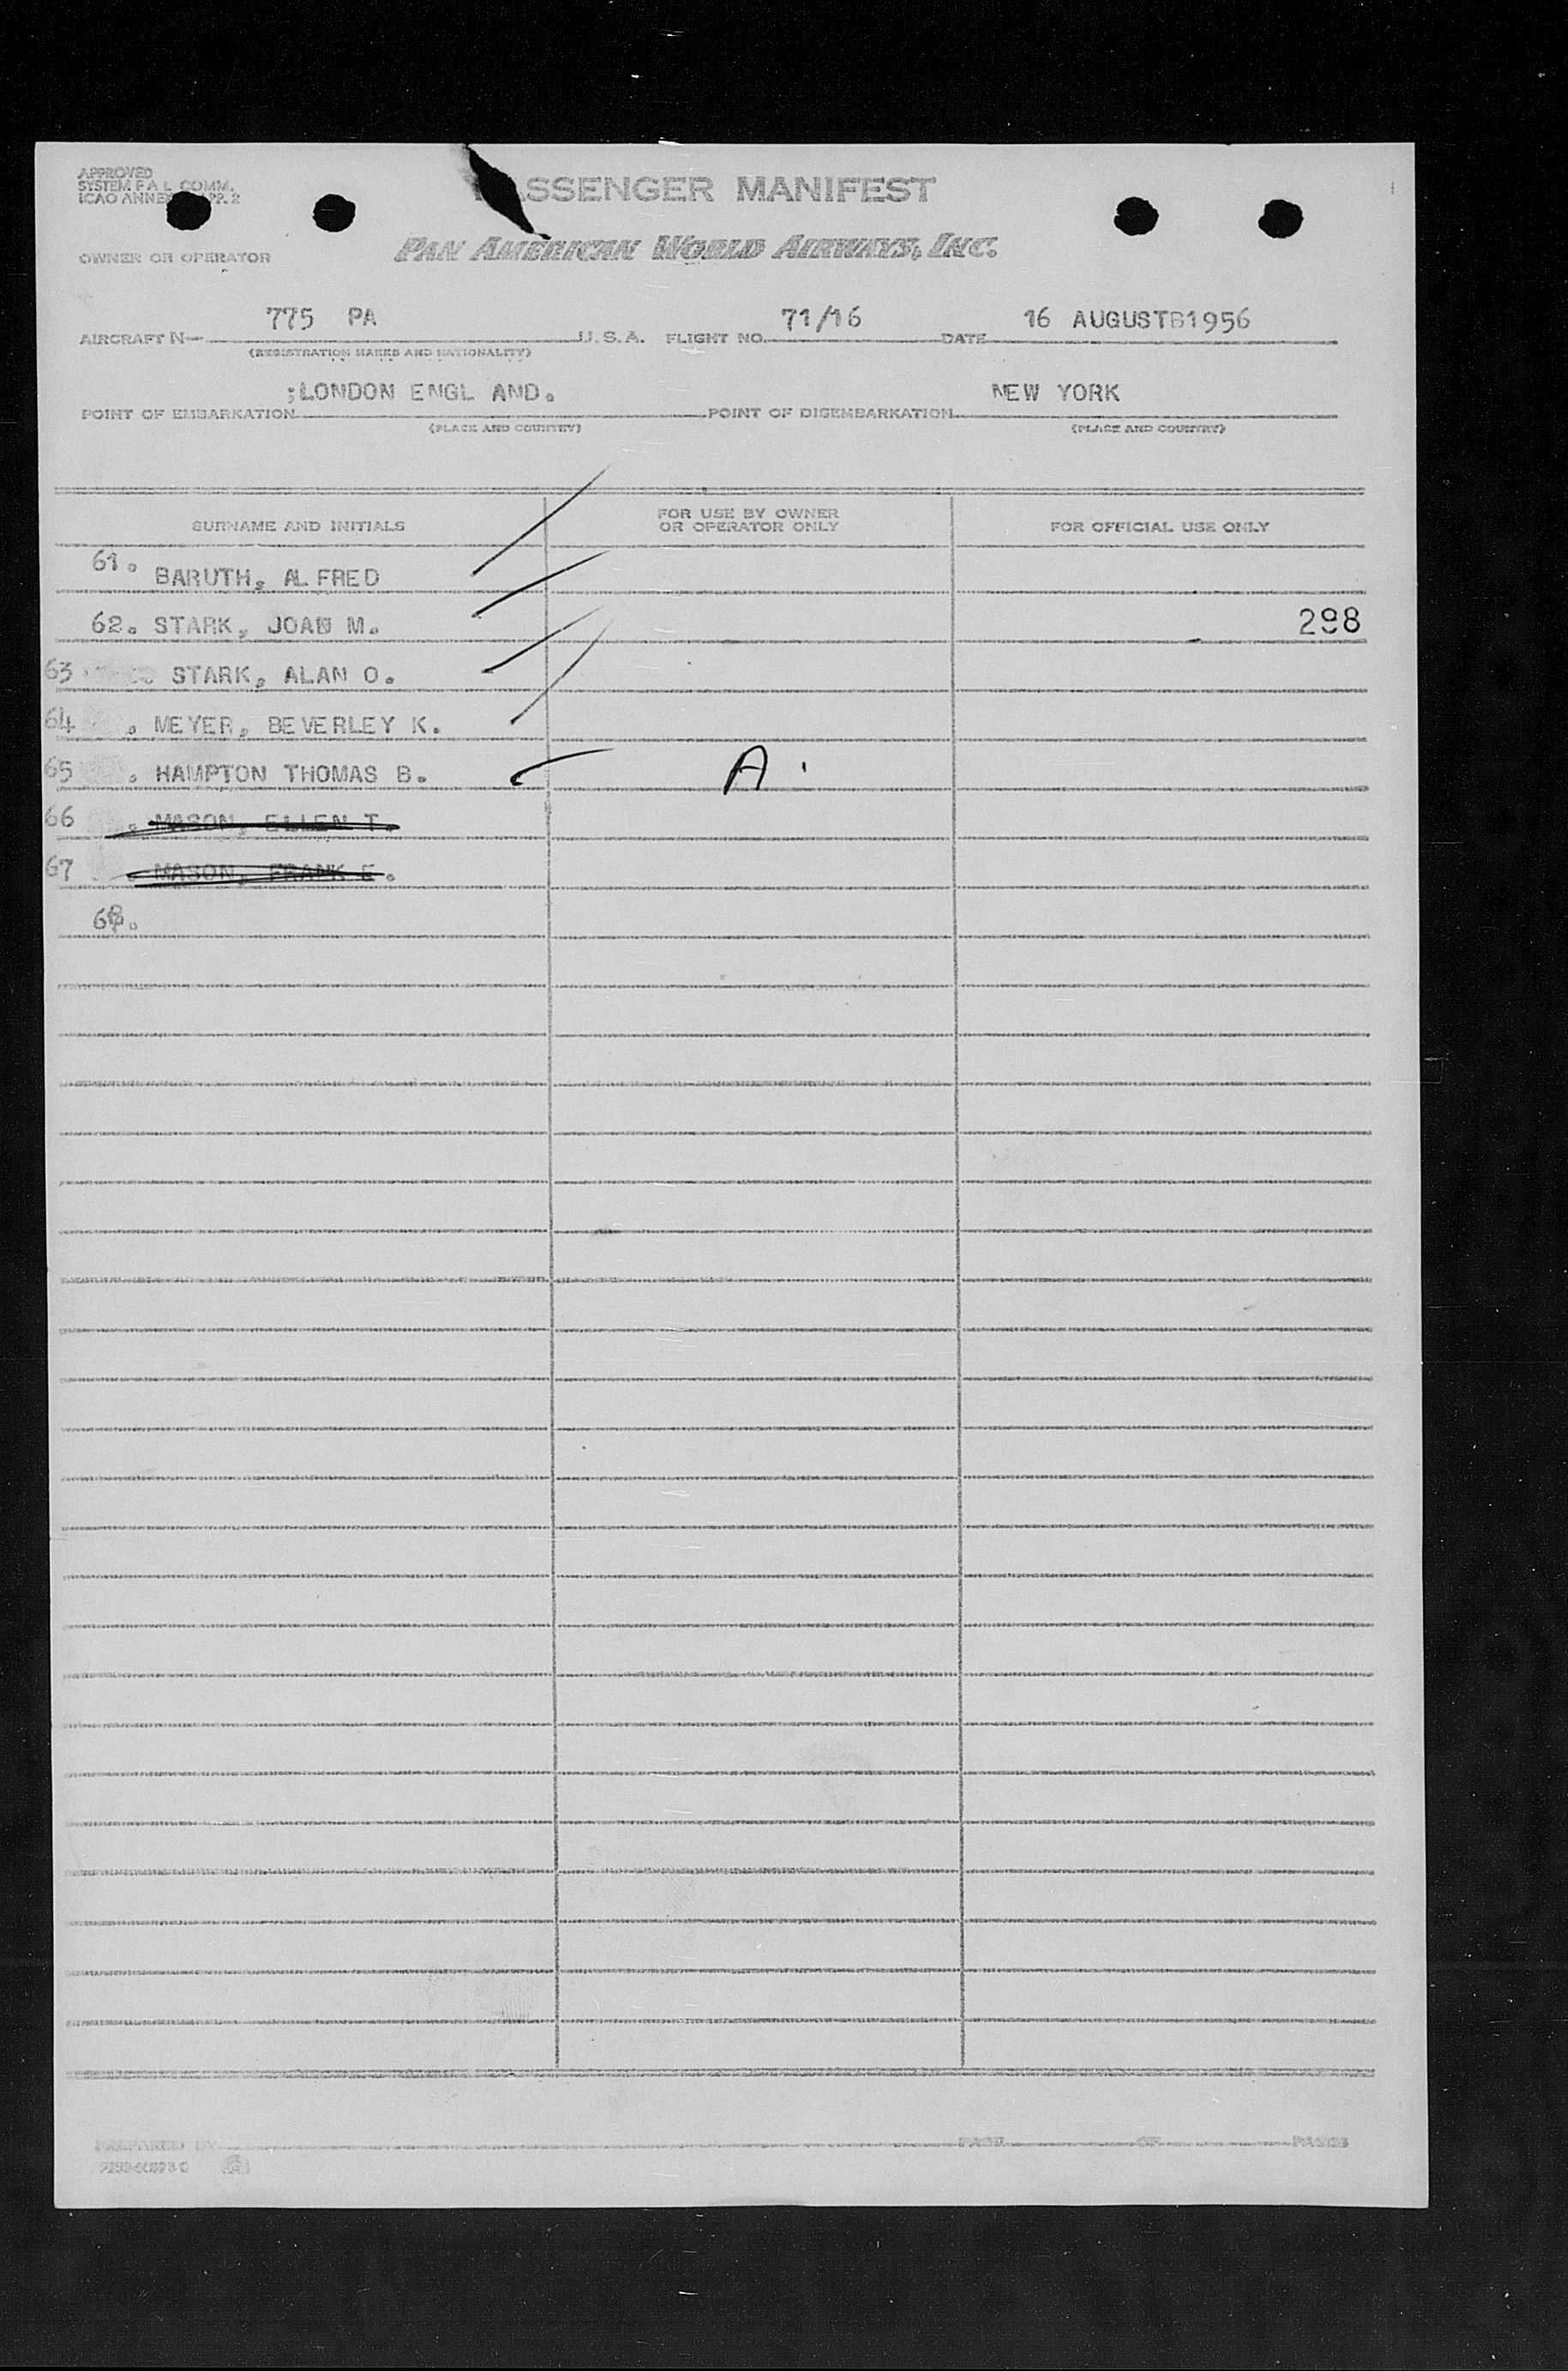 APPROVED
SYSTEM F A L COMM.
ICAO ANNE PP. 2
ASSENGER MANIFEST
OWNER OR OPERATOR PAN AMERICAN WORLD AIRWAYS, INC.
AIRCRAFT N— 775 PA U.S.A. FLIGHT NO. 71/16 DATE 16 AUGUSTB1956
(REGISTRATION MARKS AND NATIONALITY)
POINT OF EMBARKATION ;LONDON ENGL AND. POINT OF DISEMBARKATION NEW YORK
(PLACE AND COUNTRY) (PLACE AND COUNTRY)
SURNAME AND INITIALS FOR USE BY OWNER OR OPERATOR ONLY FOR OFFICIAL USE ONLY
61. BARUTH, AL FRED
62. STARK, JOAN M. 298
63 STARK, ALAN O.
64 . MEYER, BEVERLEY K.
65 . HAMPTON THOMAS B. A
66 . MASON, ELLEN T.
67 . MASON, FRANK E.
PREPARED BY PAGE OF PAGES